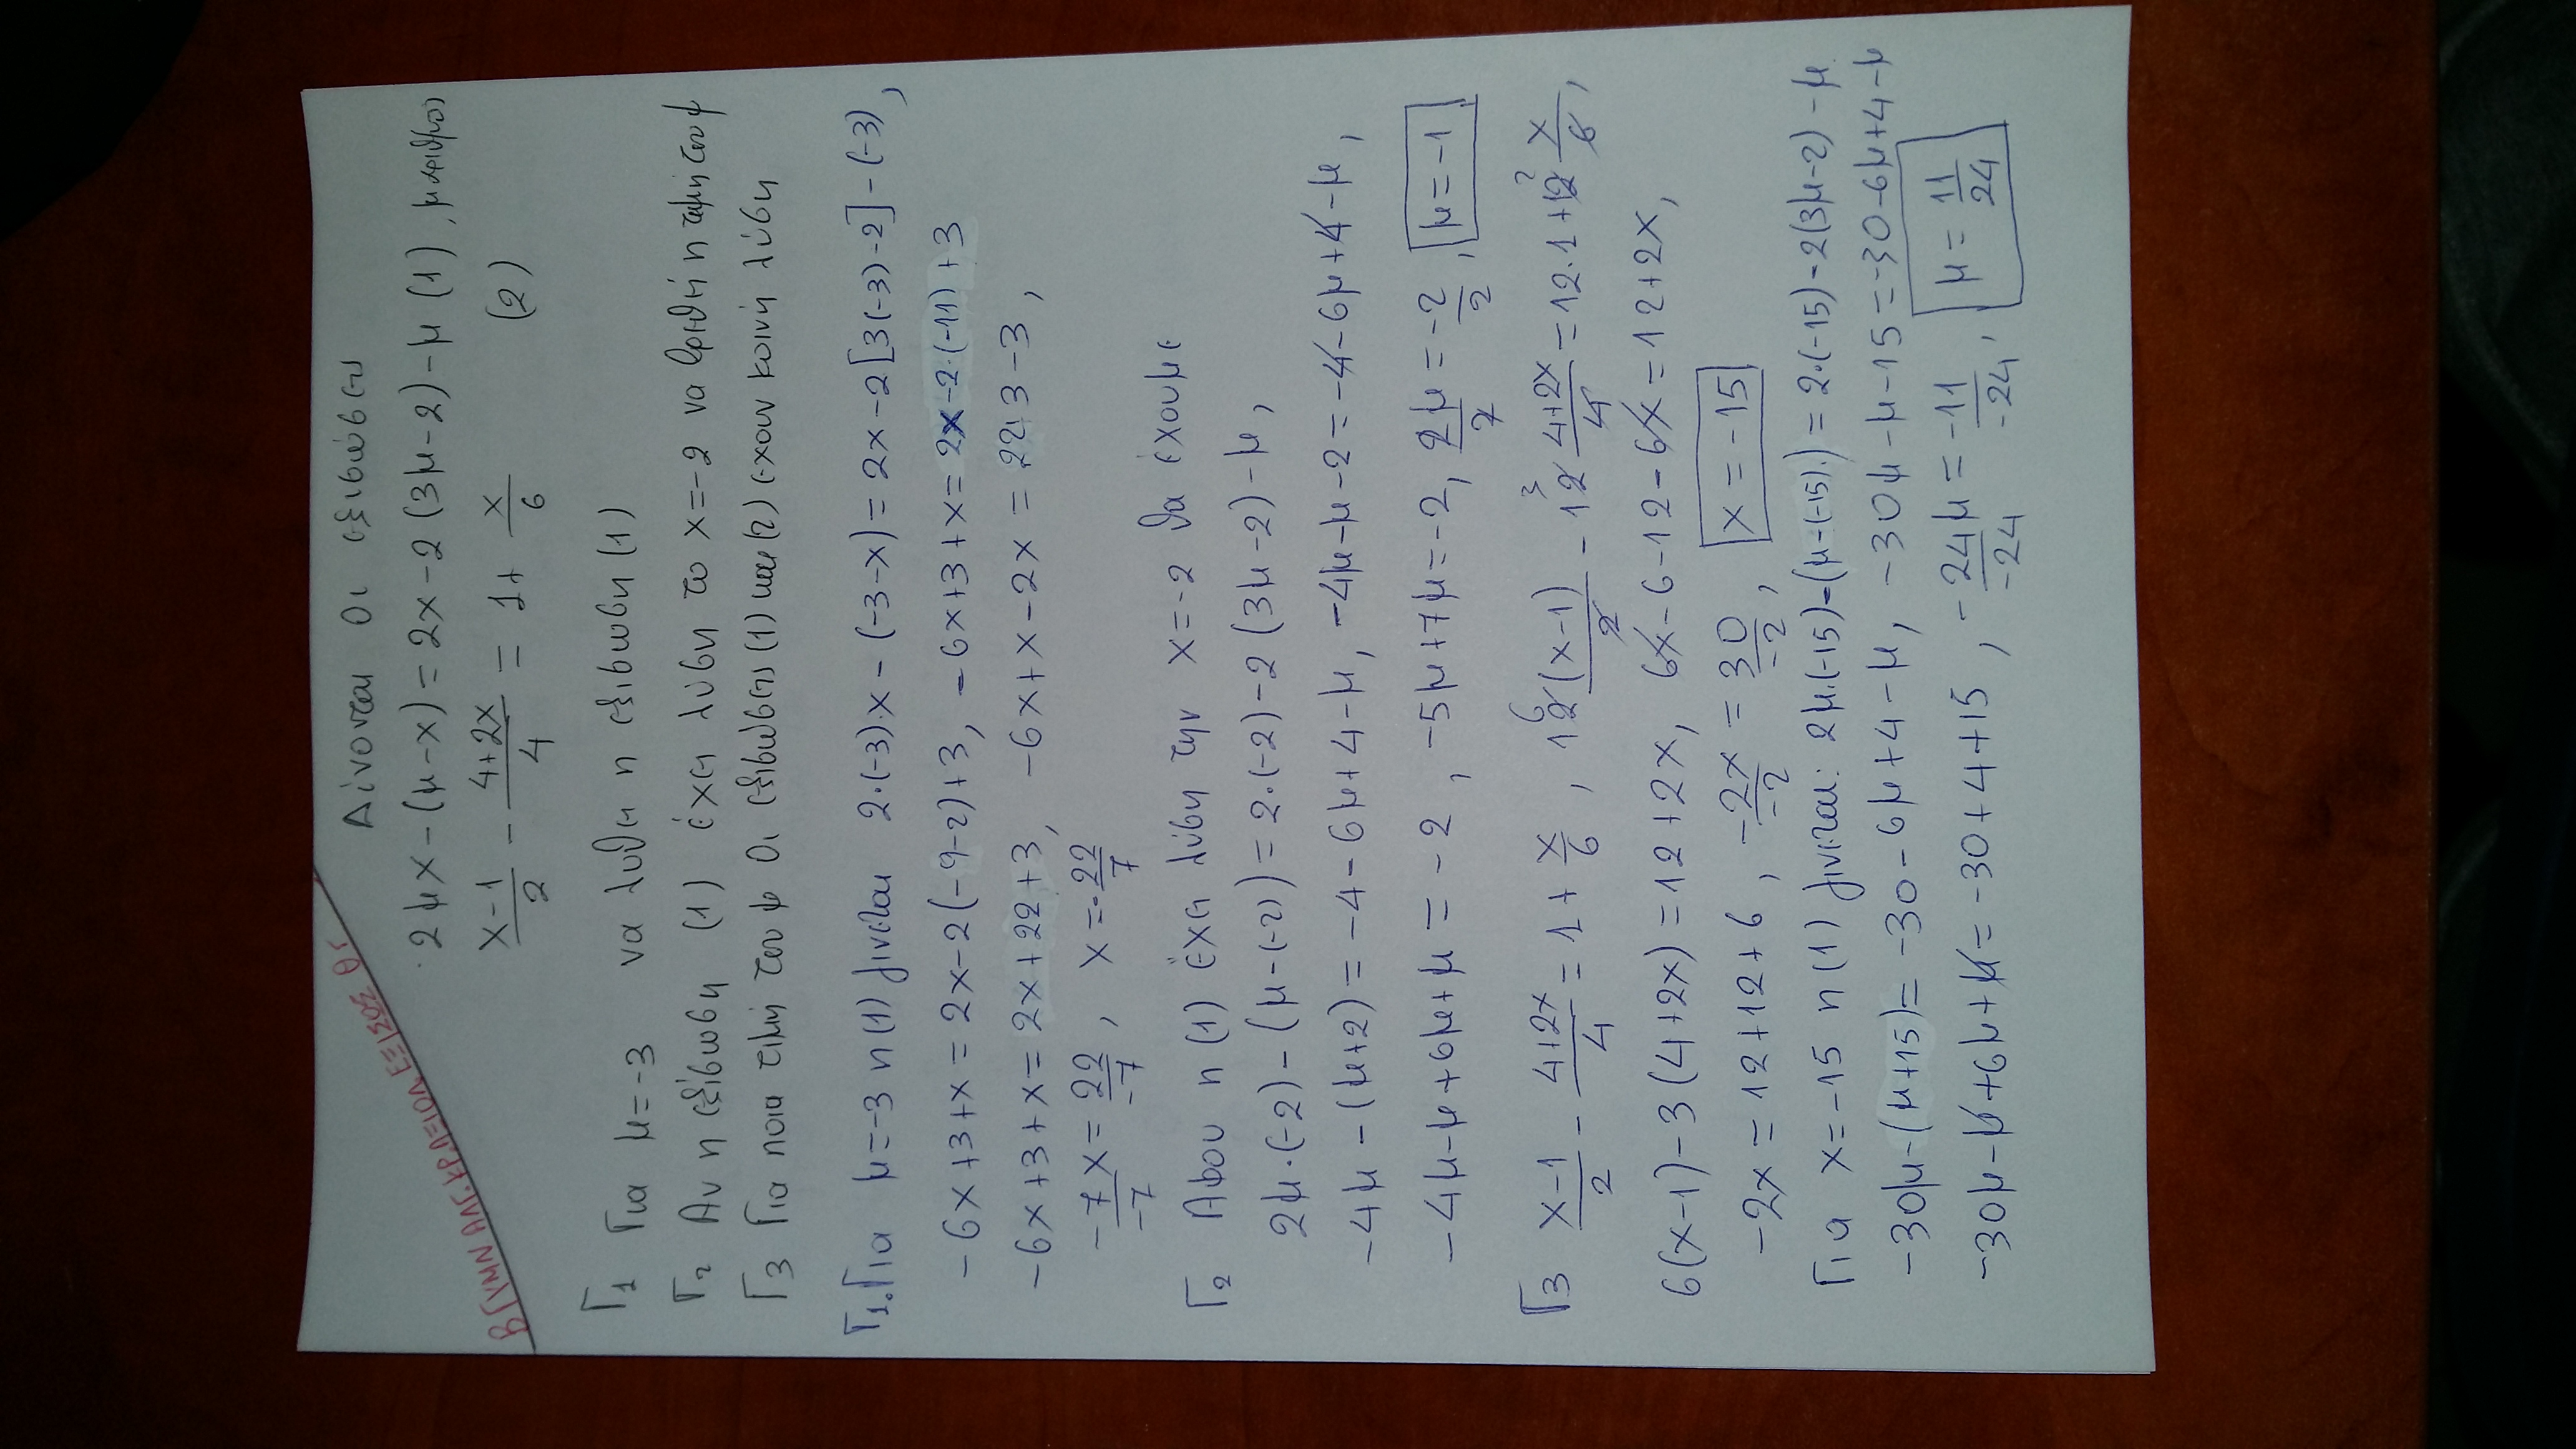 Β ΓΥΜΝ ΑΛΓ.ΚΡ ΕΞΙΣΩΣ Θ5
Δίνονται οι εξισώσεις
2μx-(μ-x)=2x-2(3μ-2)-μ (1), μ αριθμός
x-1/2 - 4+2x/4 = 1+ x/6 (2)
Γ1 Για μ=-3 να λυθεί η εξίσωση (1)
Γ2 Αν η εξίσωση (1) έχει λύση το x=-2 να βρεθεί η τιμή του μ
Γ3 Για ποια τιμή του μ οι εξισώσεις (1) και (2) έχουν κοινή λύση
Γ1. Για μ=-3 η (1) γίνεται 2·(-3)·x-(-3-x)=2x-2[3(-3)-2]-(-3),
-6x+3+x=2x-2(-9-2)+3, -6x+3+x=2x-2·(-11)+3
-6x+3+x=2x+22+3, -6x+x-2x=22+3-3,
-7x/-7=22/-7, x=-22/7
Γ2 Αφού η (1) έχει λύση την x=-2 θα έχουμε
2μ·(-2)-(μ-(-2))=2·(-2)-2(3μ-2)-μ,
-4μ-(μ+2)=-4-6μ+4-μ, -4μ-μ-2=-4-6μ+4-μ,
-4μ-μ+6μ+μ=-2, -5μ+7μ=-2, 2μ/7=-2/2, μ=-1
Γ3 x-1/2 - 4+2x/4 = 1+ x/6, 12 6 (x-1)/2 - 12 3 4+2x/4 = 12·1+12 2 x/6,
6(x-1)-3(4+2x)=12+2x, 6x-6-12-6x=12+2x,
-2x=12+12+6, -2x/-2=30/-2, x=-15
Για x=-15 η (1) γίνεται: 2μ·(-15)-(μ-(-15))=2·(-15)-2(3μ-2)-μ
-30μ-(μ+15)=-30-6μ+4-μ, -30μ-μ-15=-30-6μ+4-μ
-30μ-μ+6μ+μ=-30+4+15, -24μ/-24=-11/-24, μ=11/24